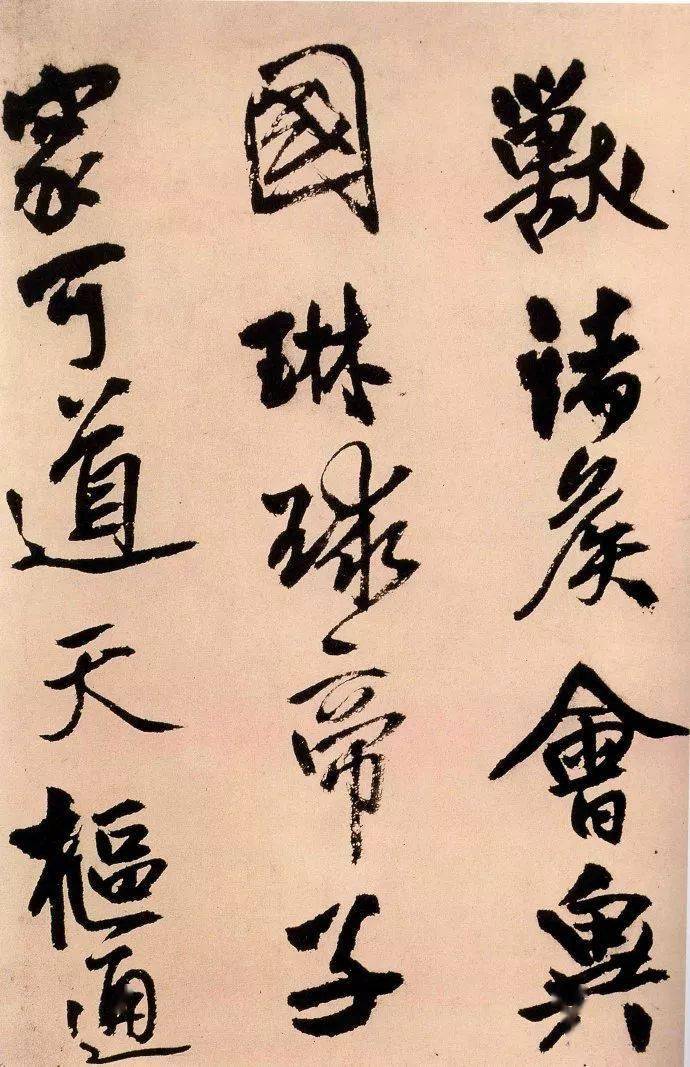 獸諸矦會異
國琳球帝子
家可道天樞通